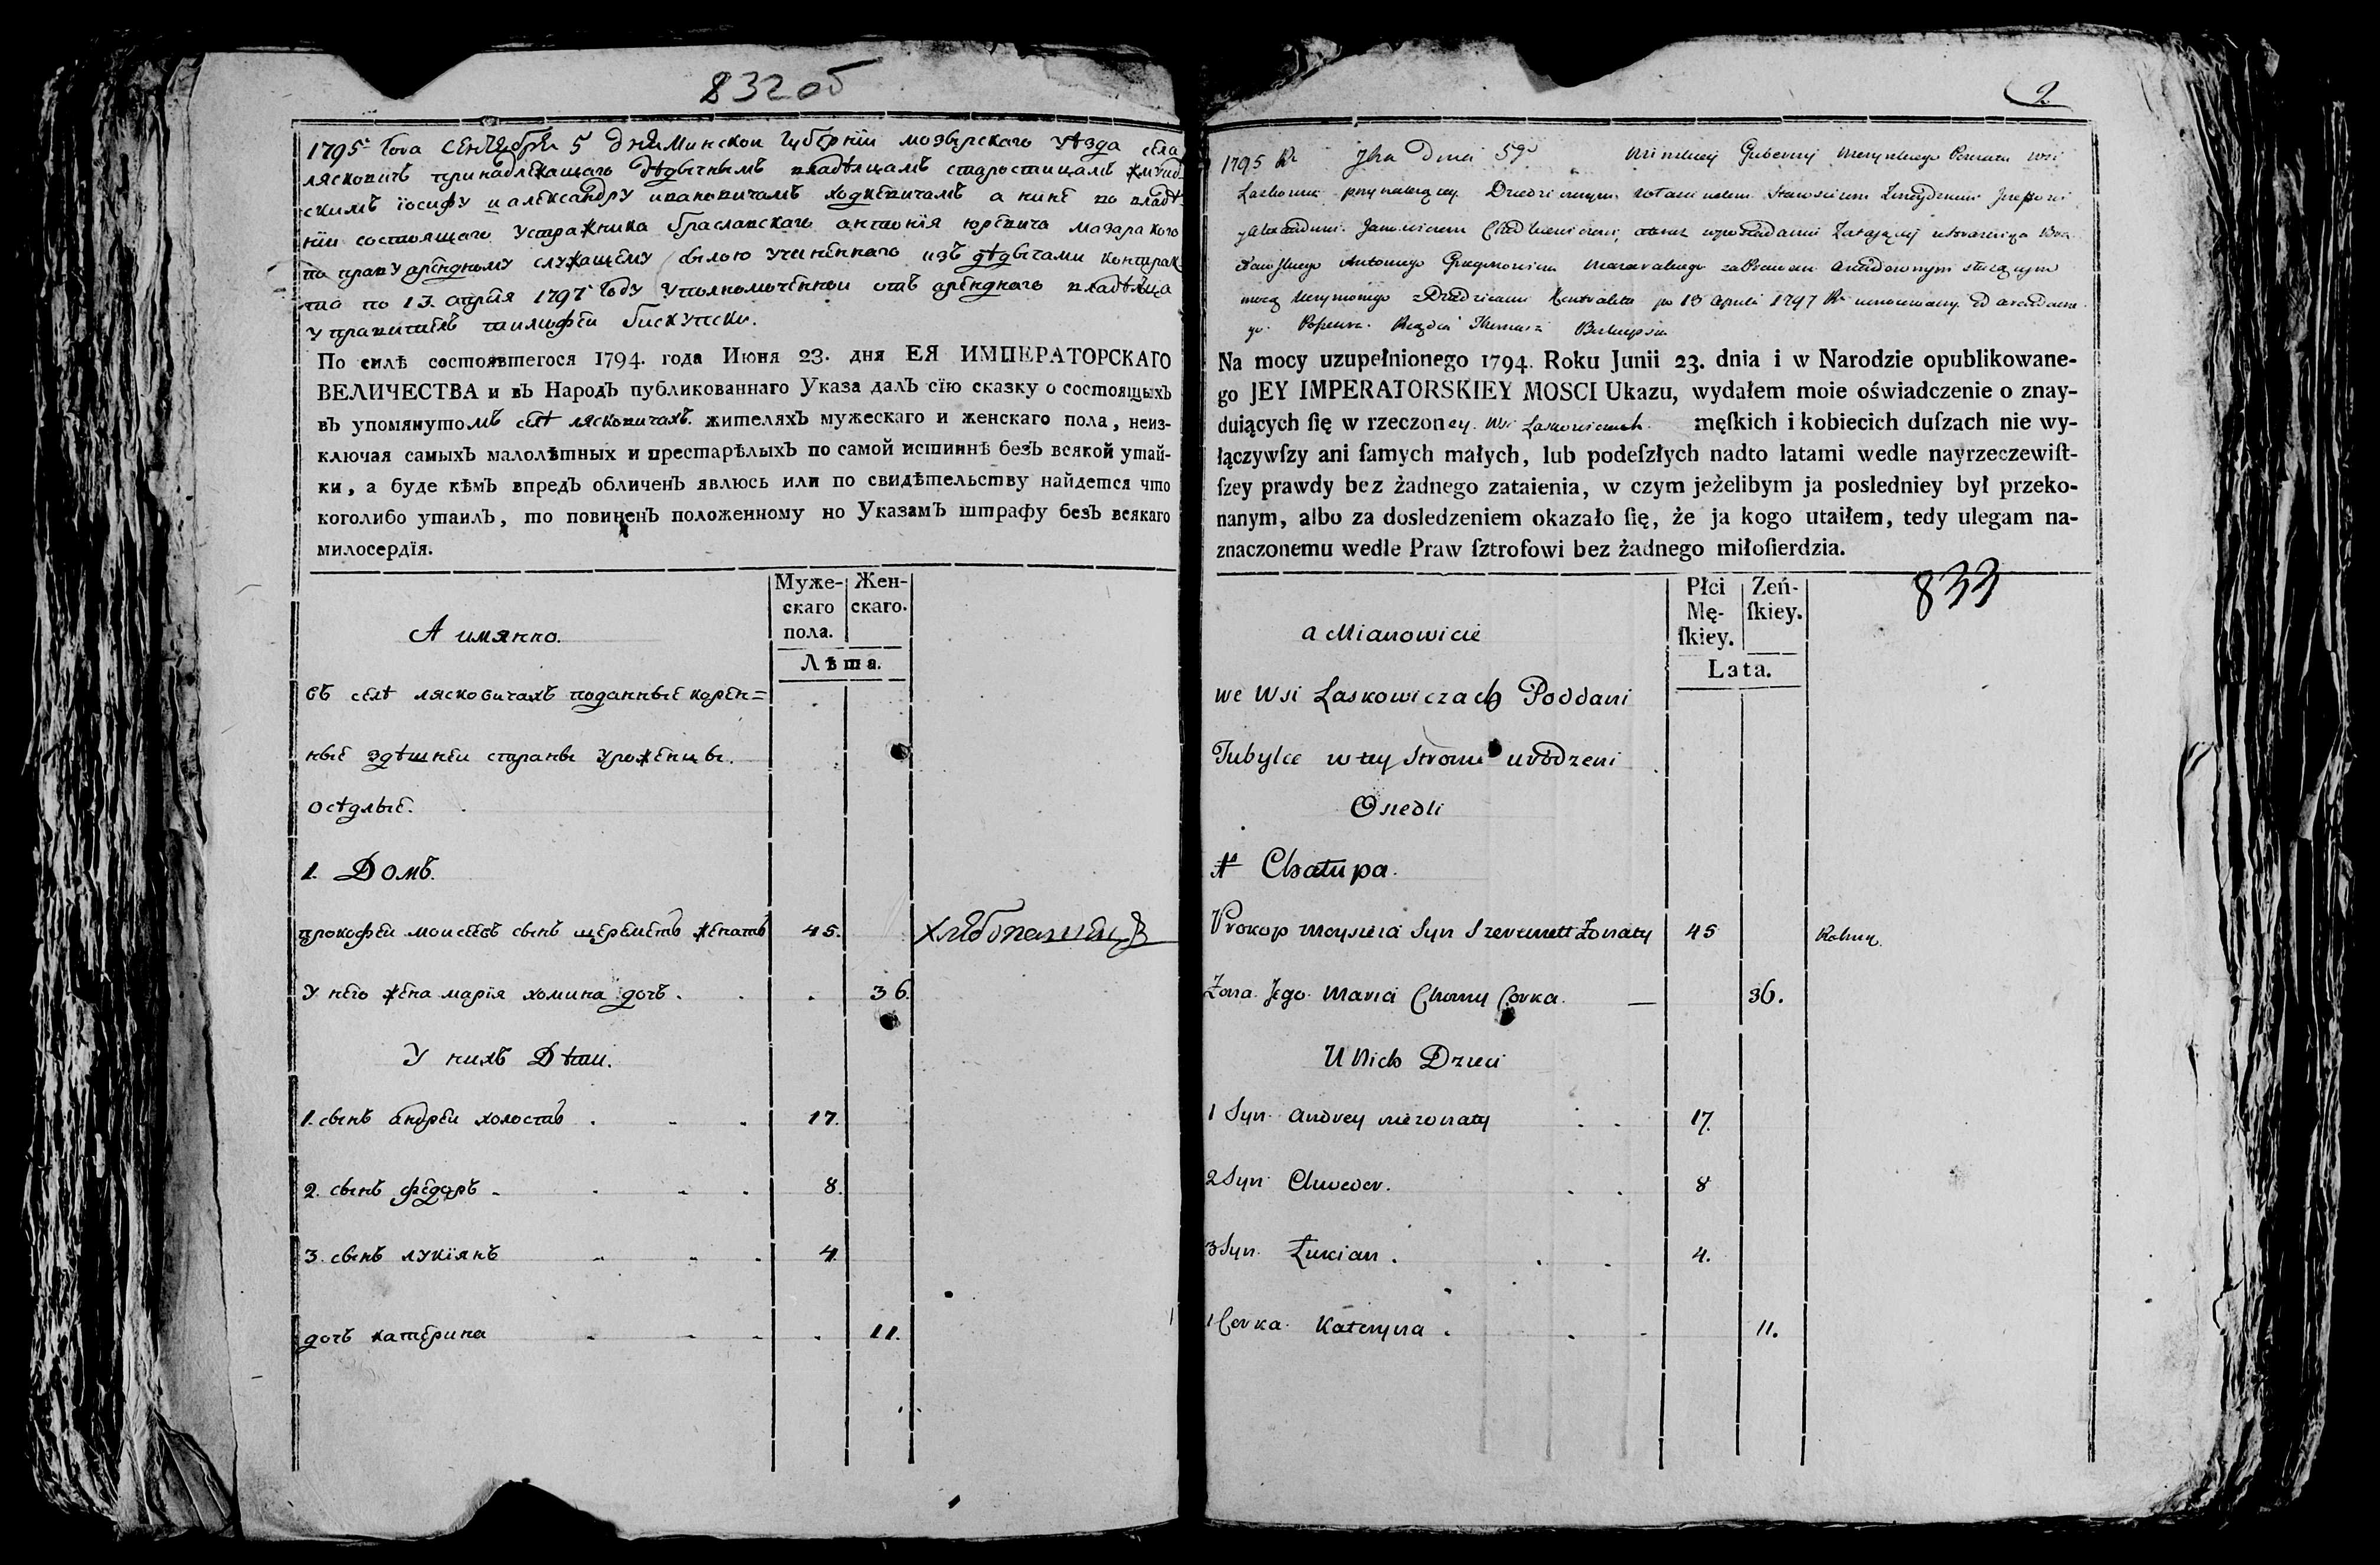 832 об
1795 Года Сентября 5 дня Минской Губернїи мозырскаго уѣзда села
лясковичъ принадлежащаго дѣдычнымъ владѣлцамъ старостицамъ жмуд-
скимъ їосифу и александру ивановичамъ ходкевичамъ а нинѣ во владѣ-
нїи состоящаго устражника браславскаго антонїя юревича мазаракого
по праву арендному служащему силою учиненнаго изъ дѣдычами контрак-
та по 13. апреля 1797 Году уполномоченной отъ аренднаго владѣлца
управитель тимофей бискупски.
По силѣ состоявшегося 1794. года Июня 23. дня ЕЯ ИМПЕРАТОРСКАГО
ВЕЛИЧЕСТВА и въ Народъ публикованнаго Указа далъ сїю сказку о состоящыхъ
въ упомянутомъ селѣ лясковичахъ. жителяхъ мужескаго и женскаго пола, неиз-
ключая самыхъ малолѣтныхъ и престарѣлыхъ по самой истиннѣ безъ всякой утай-
ки, а буде кѣмъ впредъ обличенъ явлюсь или по свидѣтельству найдется что
коголибо утаилъ, то повиненъ положенному по Указамъ штрафу безъ всякаго
милосердїя.
Муже- Жен-
скаго скаго.
пола.
А имянно.
Лѣта.
въ селѣ лясковичахъ поданные корен=
ные здѣшней страны уроженцы.
осѣдлые.
1. Домъ.
прокофей моисеевъ сынъ щереметъ женатъ 45. хлѣбопашецъ
У него жена марїя хомина дочь. 36.
У нихъ Дѣти.
1. сынъ андрей холостъ 17.
2. сынъ федоръ 8.
3. сынъ лукїянъ 4
дочь катерина 11.
2
1795 Rku Jbra Dnia 5go Minskiey Gubernij Mozyrskiego Powiatu wsi
Antoniego
po 13 Aprila 1797 Rku
Na mocy uzupełnionego 1794. Roku Junii 23. dnia i w Narodzie opublikowane-
go JEY IMPERATORSKIEY MOSCI Ukazu, wydałem moie oświadczenie o znay-
duiących ſię w rzeczoney. Wsi Laskowiczach. męſkich i kobiecich duſzach nie wy-
łączywſzy ani ſamych małych, lub podeſzłych nadto latami wedle nayrzeczewiſt-
ſzey prawdy bez żadnego zataienia, w czym jeżelibym ja posledniey był przeko-
nanym, albo za dosledzeniem okazało ſię, że ja kogo utaiłem, tedy ulegam na-
znaczonemu wedle Praw ſztrofowi bez żadnego miłoſierdzia.
Płci Zeń-
Mę- ſkiey.
ſkiey.
833
a Mianowicie
Lata.
we Wsi Laskowiczach Poddani
Tubylce w tey Stronie urodzeni
Osiedli
1 Chałupa.
Prokop Moysieia Syn Szeremett Żonaty 45 Rolnik.
Żona Jego Maria Chomy Corka. 36.
U Nich Dzieci
1 Syn Andrey nieżonaty 17.
2 Syn Chweder. 8
3 Syn. Łukian. 4.
1 Corka. Kateryna. 11.